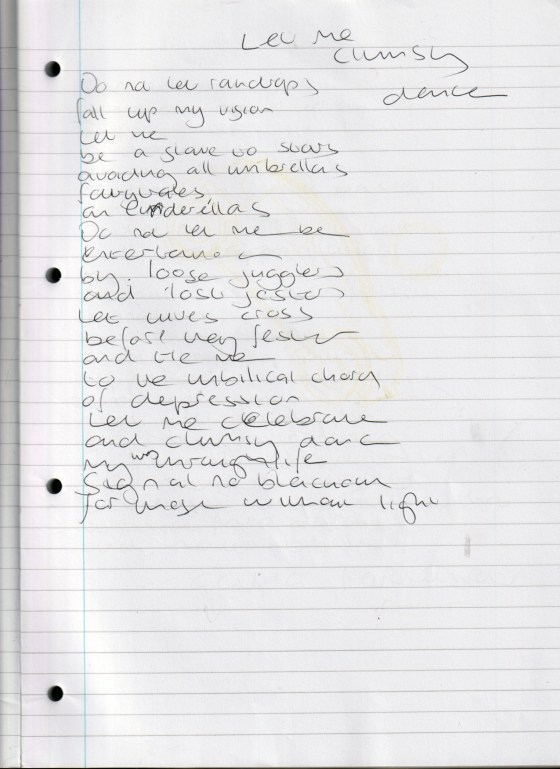 Let me
clumsy
dance
Do not let raindrops
fall up my vision
Let me
be a slave to stars
avoiding all umbrellas
fairytales
an Cinderellas
Do not let me be
entertained
by loose jugglers
and lost jesters
Let wives cross
before they fester
and tie me
to the umbilical chord
of depression
Let me celebrate
and clumsy dance
my life
Signal no blackout
for those without light